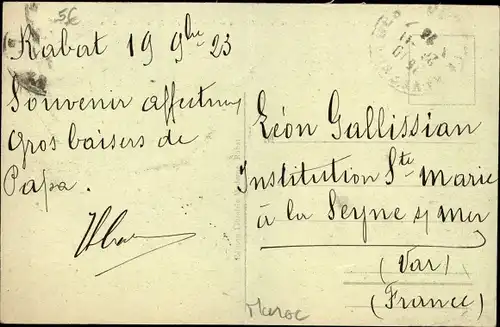 56
Rabat 19 9bre 23
Souvenir affectueux
Gros baisers de
Papa.
Léon Gallissian
Institution Ste Marie
à la Seyne s/ mer
(Var)
(France)
Maroc